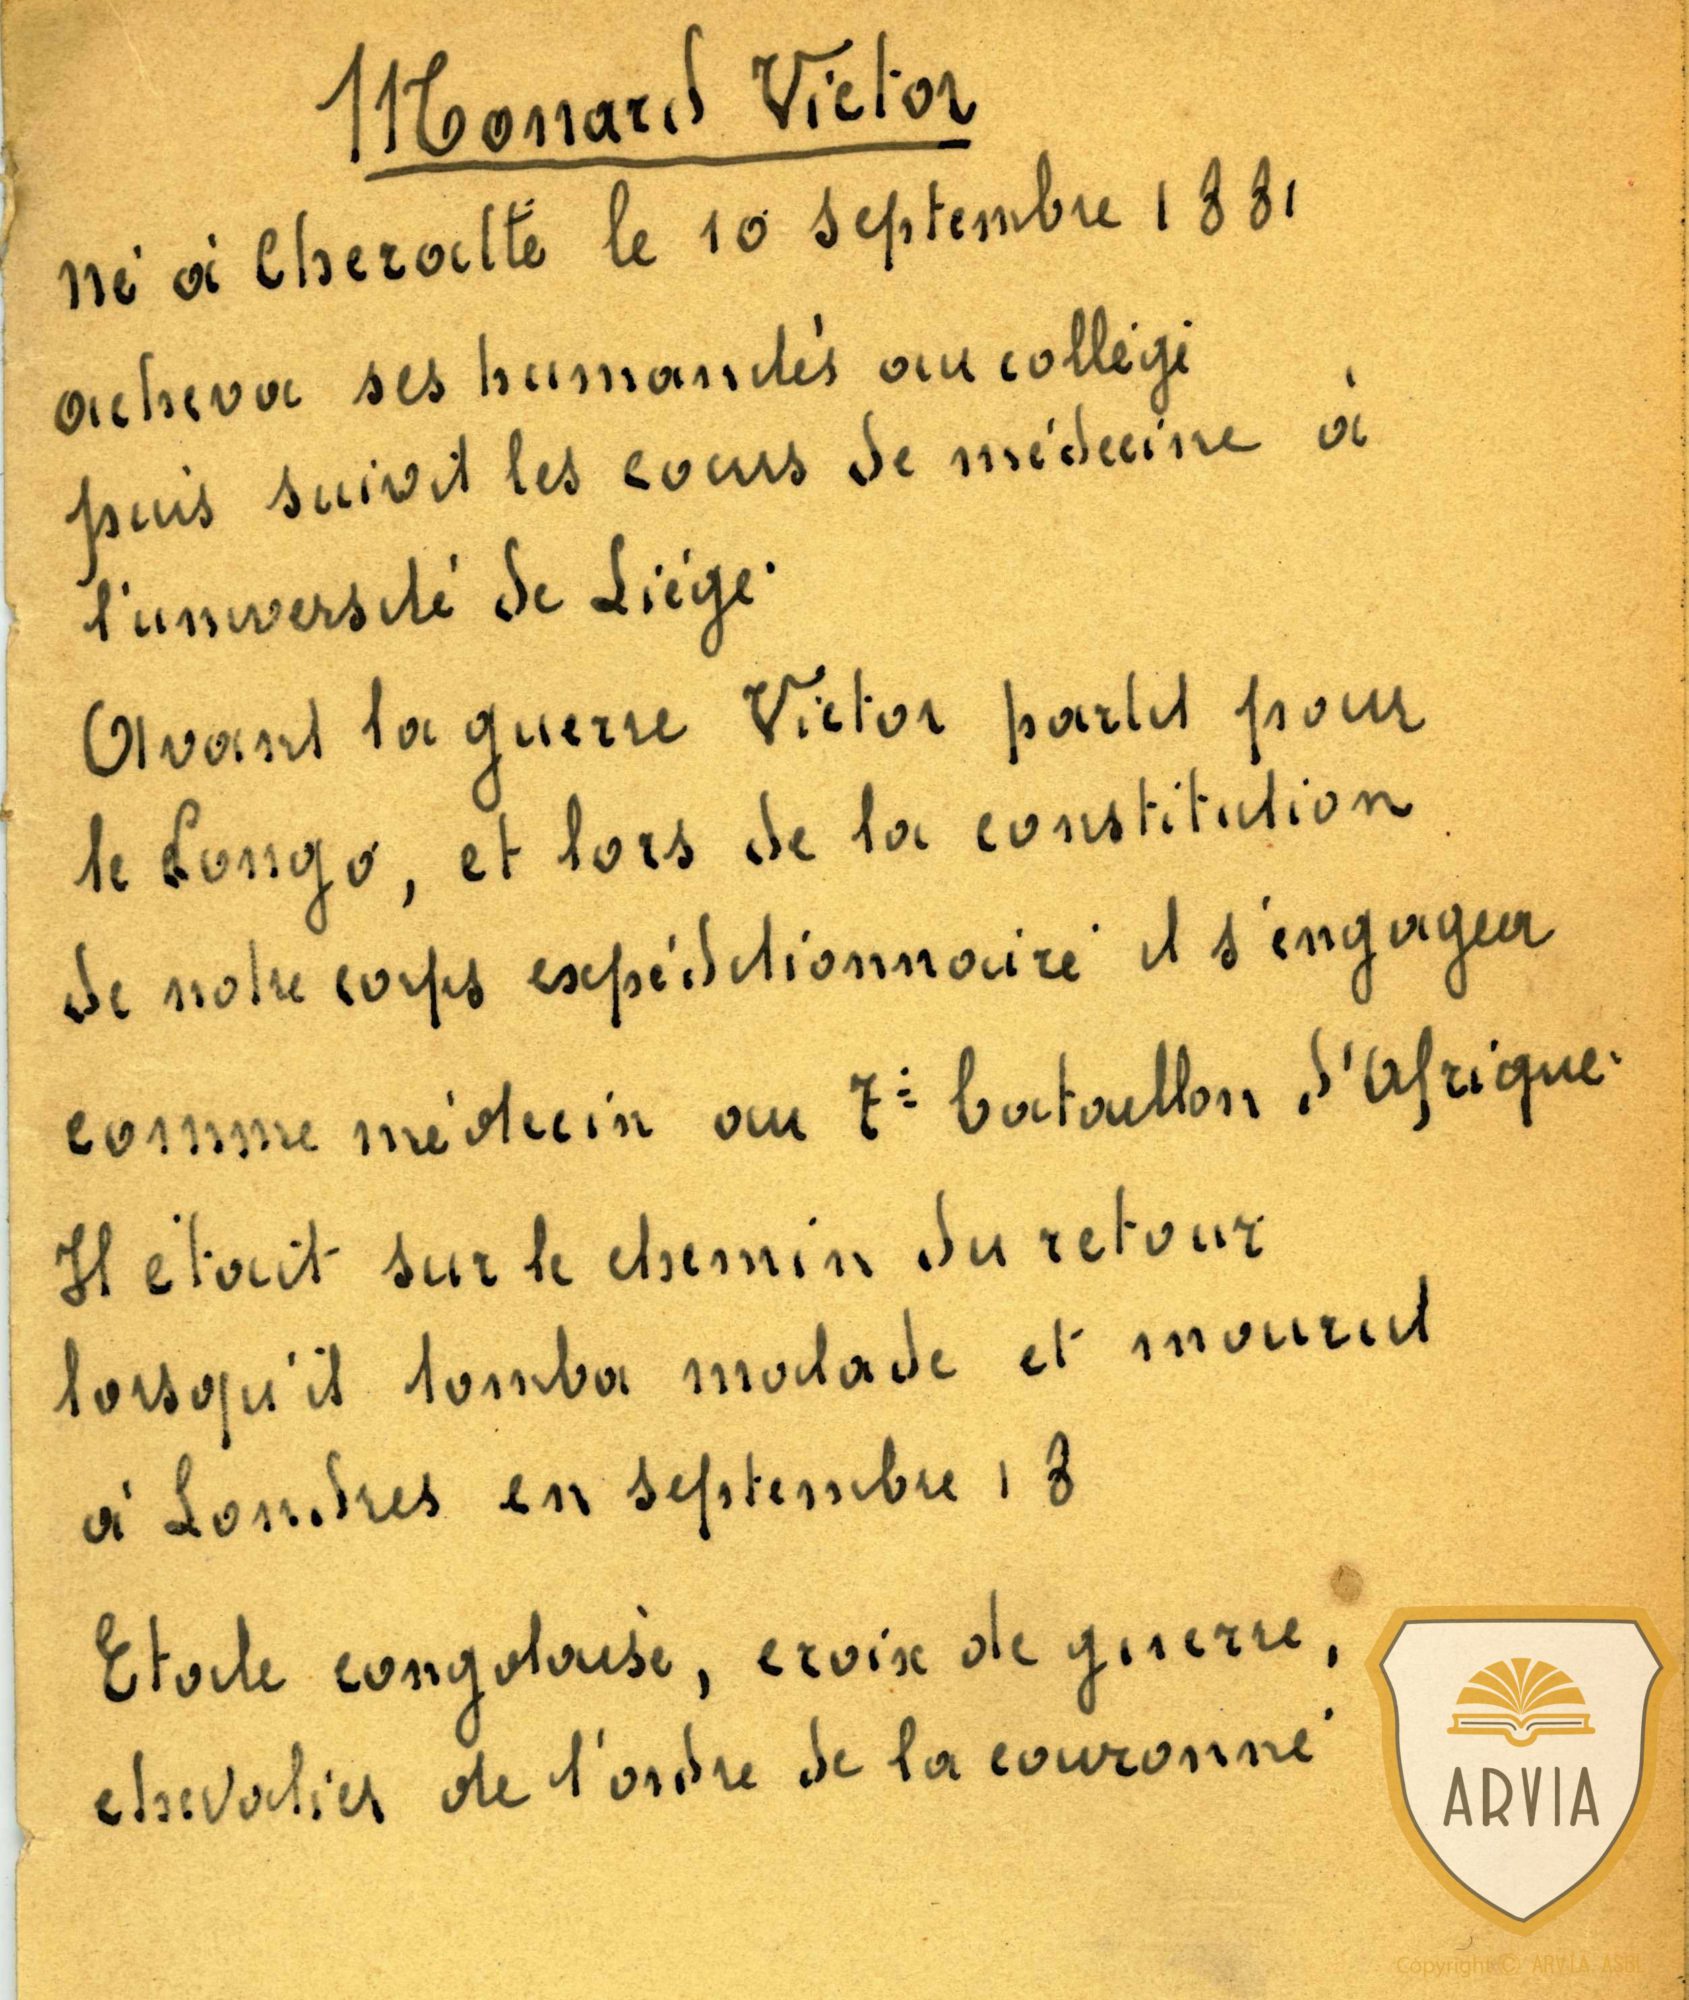 Monard Victor
né à Cheratte le 10 septembre 1881
acheva ses humanités au collège
puis suivit les cours de médecine à
l'université de Liége.
Avant la guerre Victor partit pour
le Congo, et lors de la constitution
de notre corps expéditionnaire il s'engagea
comme médecin au 7e bataillon d'Afrique.
Il était sur le chemin du retour
lorsqu'il tomba malade et mourut
à Londres en septembre 18
Etoile congolaise, croix de guerre,
chevalier de l'ordre de la couronne
ARVIA
Copyright © ARVIA ASBL